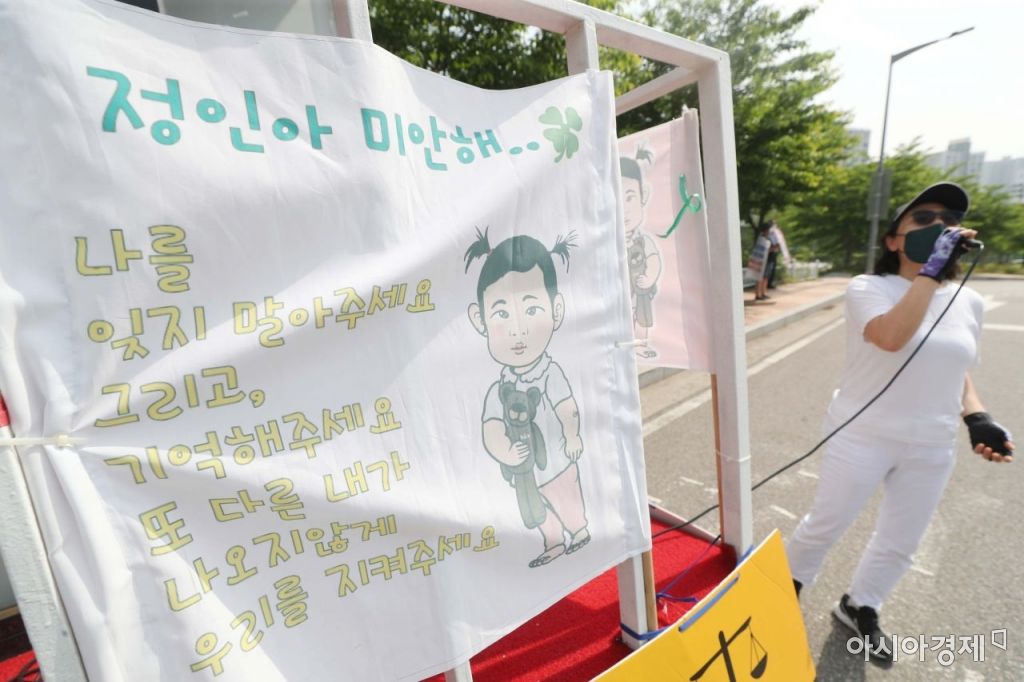 정인아 미안해..
나를
잊지 말아주세요
그리고,
기억해주세요
또 다른 내가
나오지않게
우리를 지켜주세요
아시아경제